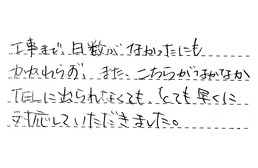 工事まで、日数がなかったにも
かかわらず、また、こちらがなかなか
TELに出られなくても、とても早くに
対応していただきました。